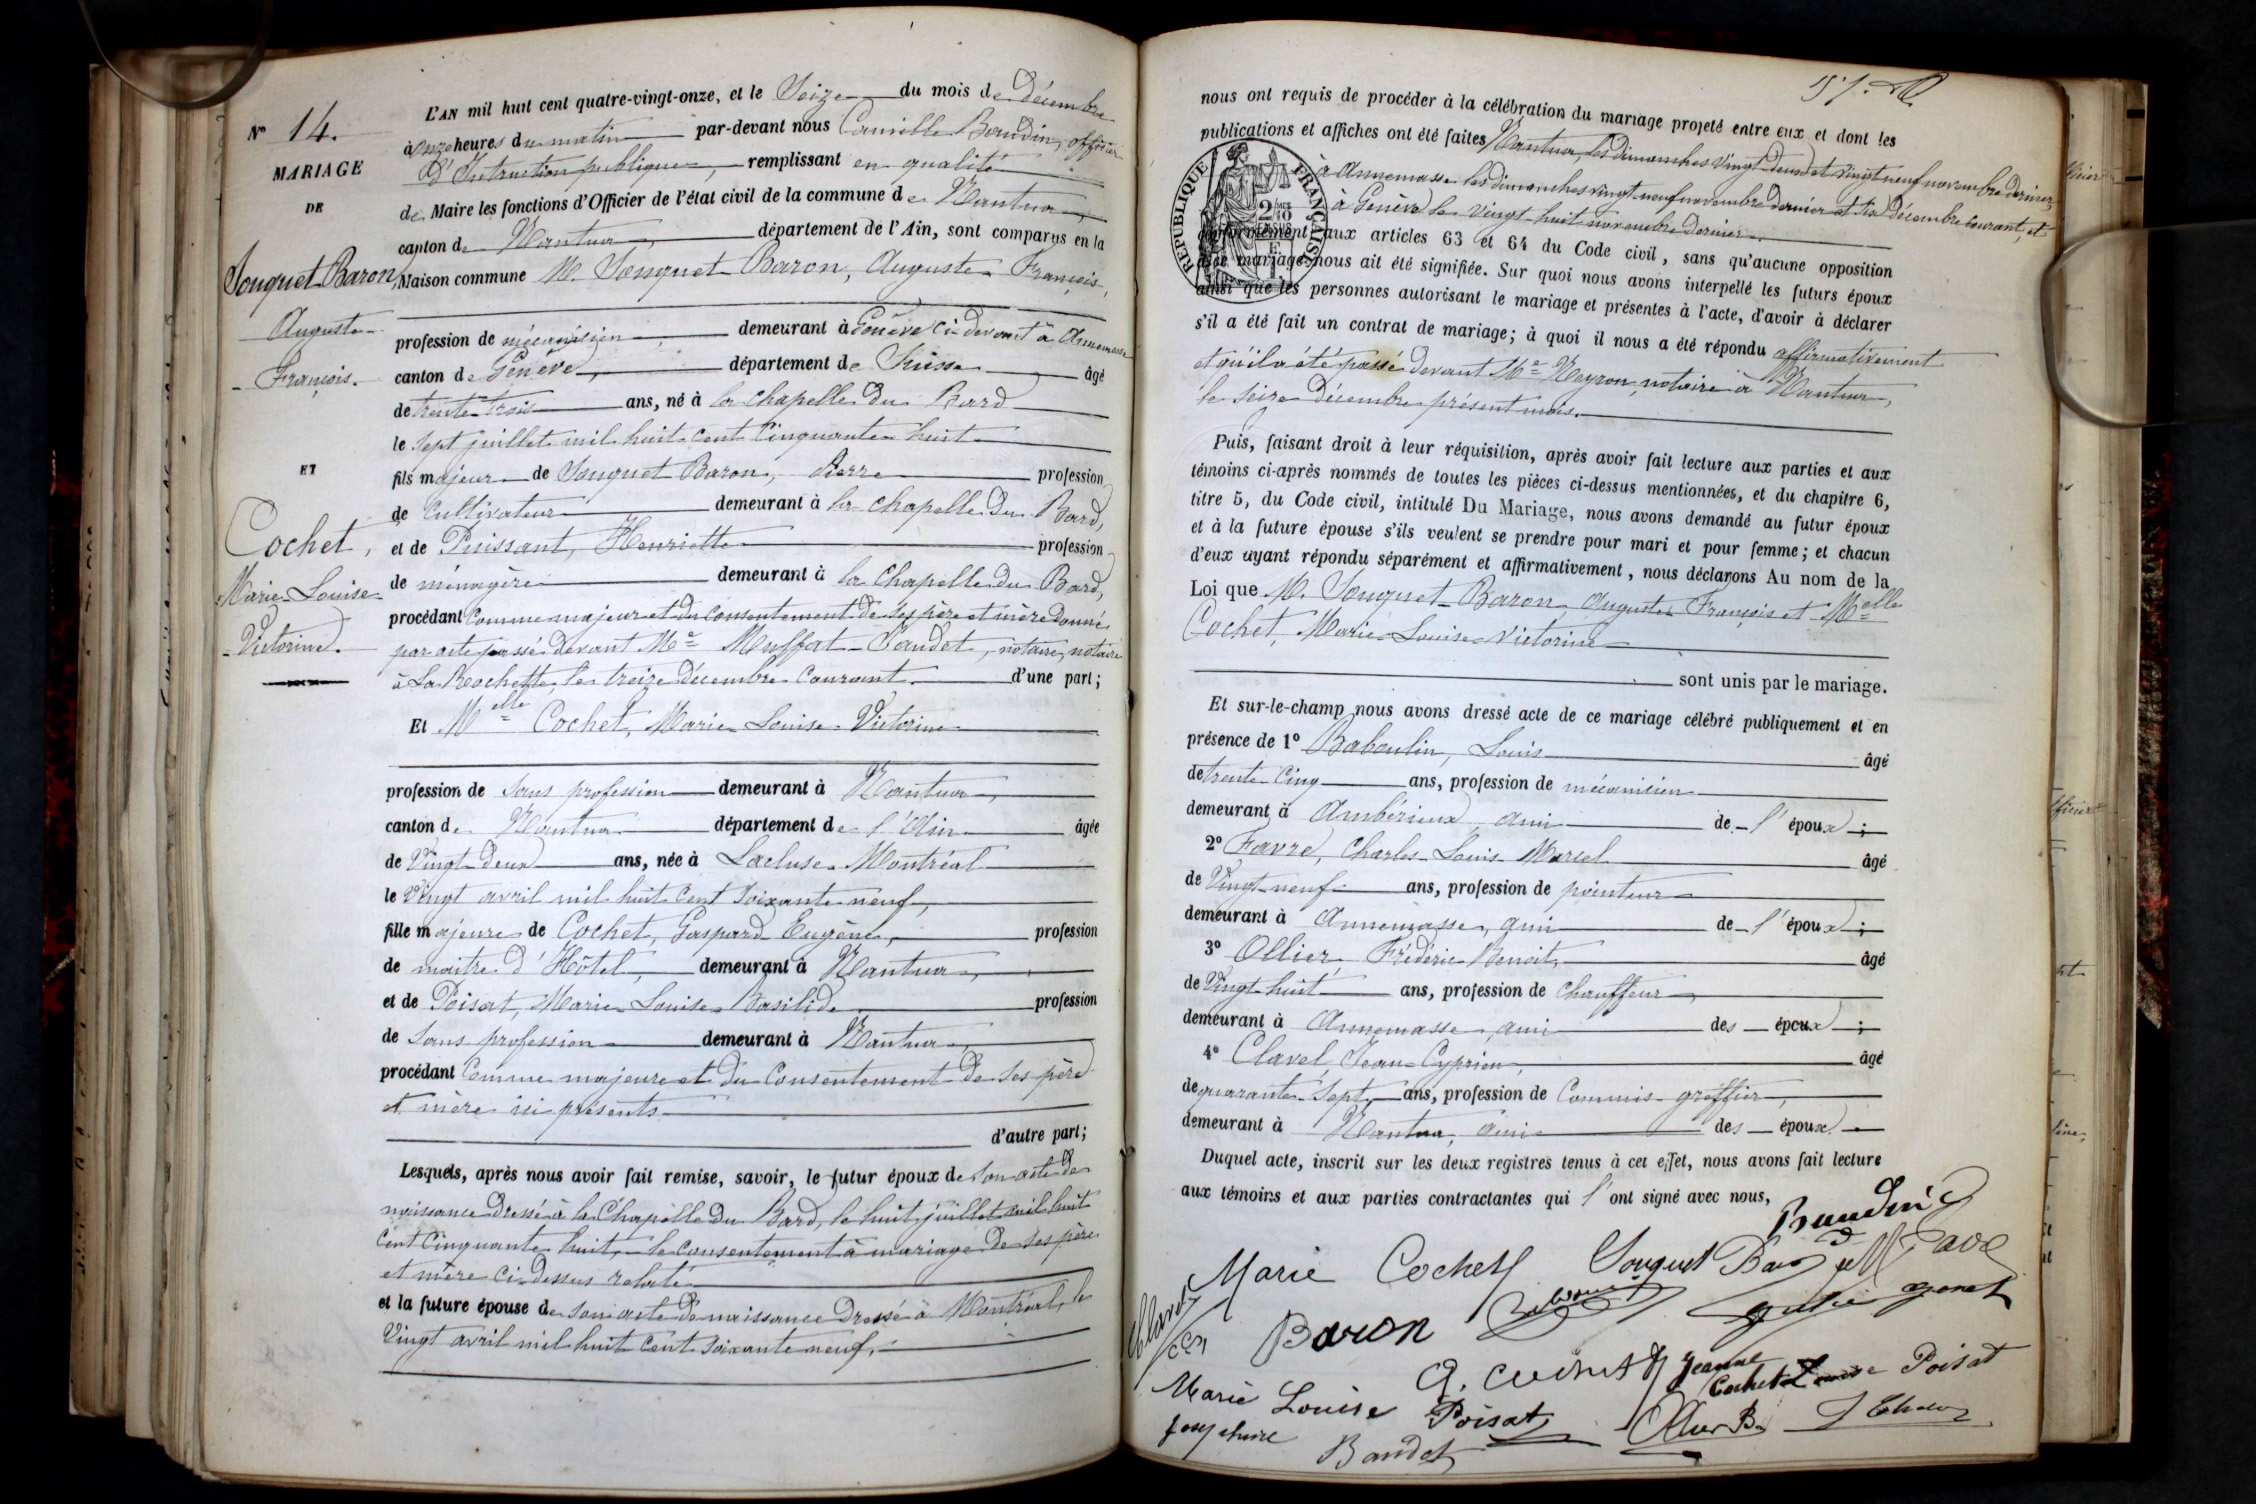 N° 14.
MARIAGE
DE
Souquet-Baron,
Auguste
François.
ET
Cochet,
Marie-Louise-
Victorine.
L'AN mil huit cent quatre-vingt-onze, et le Seize du mois de décembre
à onze heures du matin par-devant nous Camille Baudin, officier
d'Instruction publique, remplissant en qualité
de Maire les fonctions d'Officier de l'état civil de la commune de Nantua,
canton de Nantua, département de l'Ain, sont comparus en la
Maison commune M. Souquet-Baron, Auguste François,
profession de mécanicien, demeurant à Genève ci-devant à Annemasse
canton de Genève, département de Suisse âgé
de trente-trois ans, né à la Chapelle du Bard
le Sept juillet mil huit cent cinquante huit
fils majeur de Souquet Baron, Pierre profession
de Cultivateur demeurant à la Chapelle du Bard,
et de Puissant, Henriette profession
de ménagère demeurant à la Chapelle du Bard,
procédant comme majeur et du consentement de ses père et mère donné
par acte passé devant Me Muffat-Jaudet, notaire, notaire
à La Rochette, le treize décembre courant. d'une part;
Et Melle Cochet, Marie Louise Victorine
profession de Sans profession demeurant à Nantua,
canton de Nantua département de l'Ain âgée
de Vingt-deux ans, née à Lacluse-Montréal
le Vingt avril mil huit cent soixante neuf,
fille majeure de Cochet, Gaspard Eugène, profession
de maitre d'Hôtel, demeurant à Nantua,
et de Poisat, Marie Louise Basilide profession
de Sans profession demeurant à Nantua,
procédant comme majeure et du consentement de ses père
et mère ici présents
d'autre part;
Lesquels, après nous avoir fait remise, savoir, le futur époux de son acte de
naissance dressé à la Chapelle du Bard, le huit juillet mil huit
cent cinquante huit, le consentement à mariage de ses père
et mère ci-dessus relaté
et la future épouse de son acte de naissance dressé à Montréal, le
Vingt avril mil huit cent soixante neuf.
nous ont requis de procéder à la célébration du mariage projeté entre eux et dont les
publications et affiches ont été faites Nantua, les dimanches vingt deux et vingt neuf novembre dernier,
à Annemasse les dimanches vingt-neuf novembre dernier et six décembre courant, et
à Genève le vingt-huit novembre dernier
RÉPUBLIQUE FRANÇAISE
conformément aux articles 63 et 64 du Code civil, sans qu'aucune opposition
audit mariage nous ait été signifiée. Sur quoi nous avons interpellé les futurs époux
ainsi que les personnes autorisant le mariage et présentes à l'acte, d'avoir à déclarer
s'il a été fait un contrat de mariage; à quoi il nous a été répondu affirmativement
et qu'il a été passé devant Me Neyron, notaire à Nantua,
le seize décembre présent mois.
Puis, faisant droit à leur réquisition, après avoir fait lecture aux parties et aux
témoins ci-après nommés de toutes les pièces ci-dessus mentionnées, et du chapitre 6,
titre 5, du Code civil, intitulé Du Mariage, nous avons demandé au futur époux
et à la future épouse s'ils veulent se prendre pour mari et pour femme; et chacun
d'eux ayant répondu séparément et affirmativement, nous déclarons Au nom de la
Loi que M. Souquet-Baron, Auguste François et Melle
Cochet, Marie-Louise-Victorine
sont unis par le mariage.
Et sur-le-champ nous avons dressé acte de ce mariage célébré publiquement et en
présence de 1° Baboulin, Louis âgé
de trente-cinq ans, profession de mécanicien
demeurant à Ambérieux, ami de l'époux;
2° Favre, Charles Louis Marcel âgé
de Vingt-neuf ans, profession de pointeur
demeurant à Annemasse, ami de l'époux;
3° Ollier, Frédéric Benoit, âgé
de Vingt-huit ans, profession de Chauffeur,
demeurant à Annemasse, ami des époux;
4° Clavel, Jean-Cyprien, âgé
de quarante-sept ans, profession de Commis-greffier,
demeurant à Nantua, ami des époux.
Duquel acte, inscrit sur les deux registres tenus à cet effet, nous avons fait lecture
aux témoins et aux parties contractantes qui l'ont signé avec nous,
Baudin
Marie Cochet Souquet Baron
Clavel
Baron
Jeanne
Cochet Louise Poisat
Marie Louise Poisat
Ollier B.
Baudet